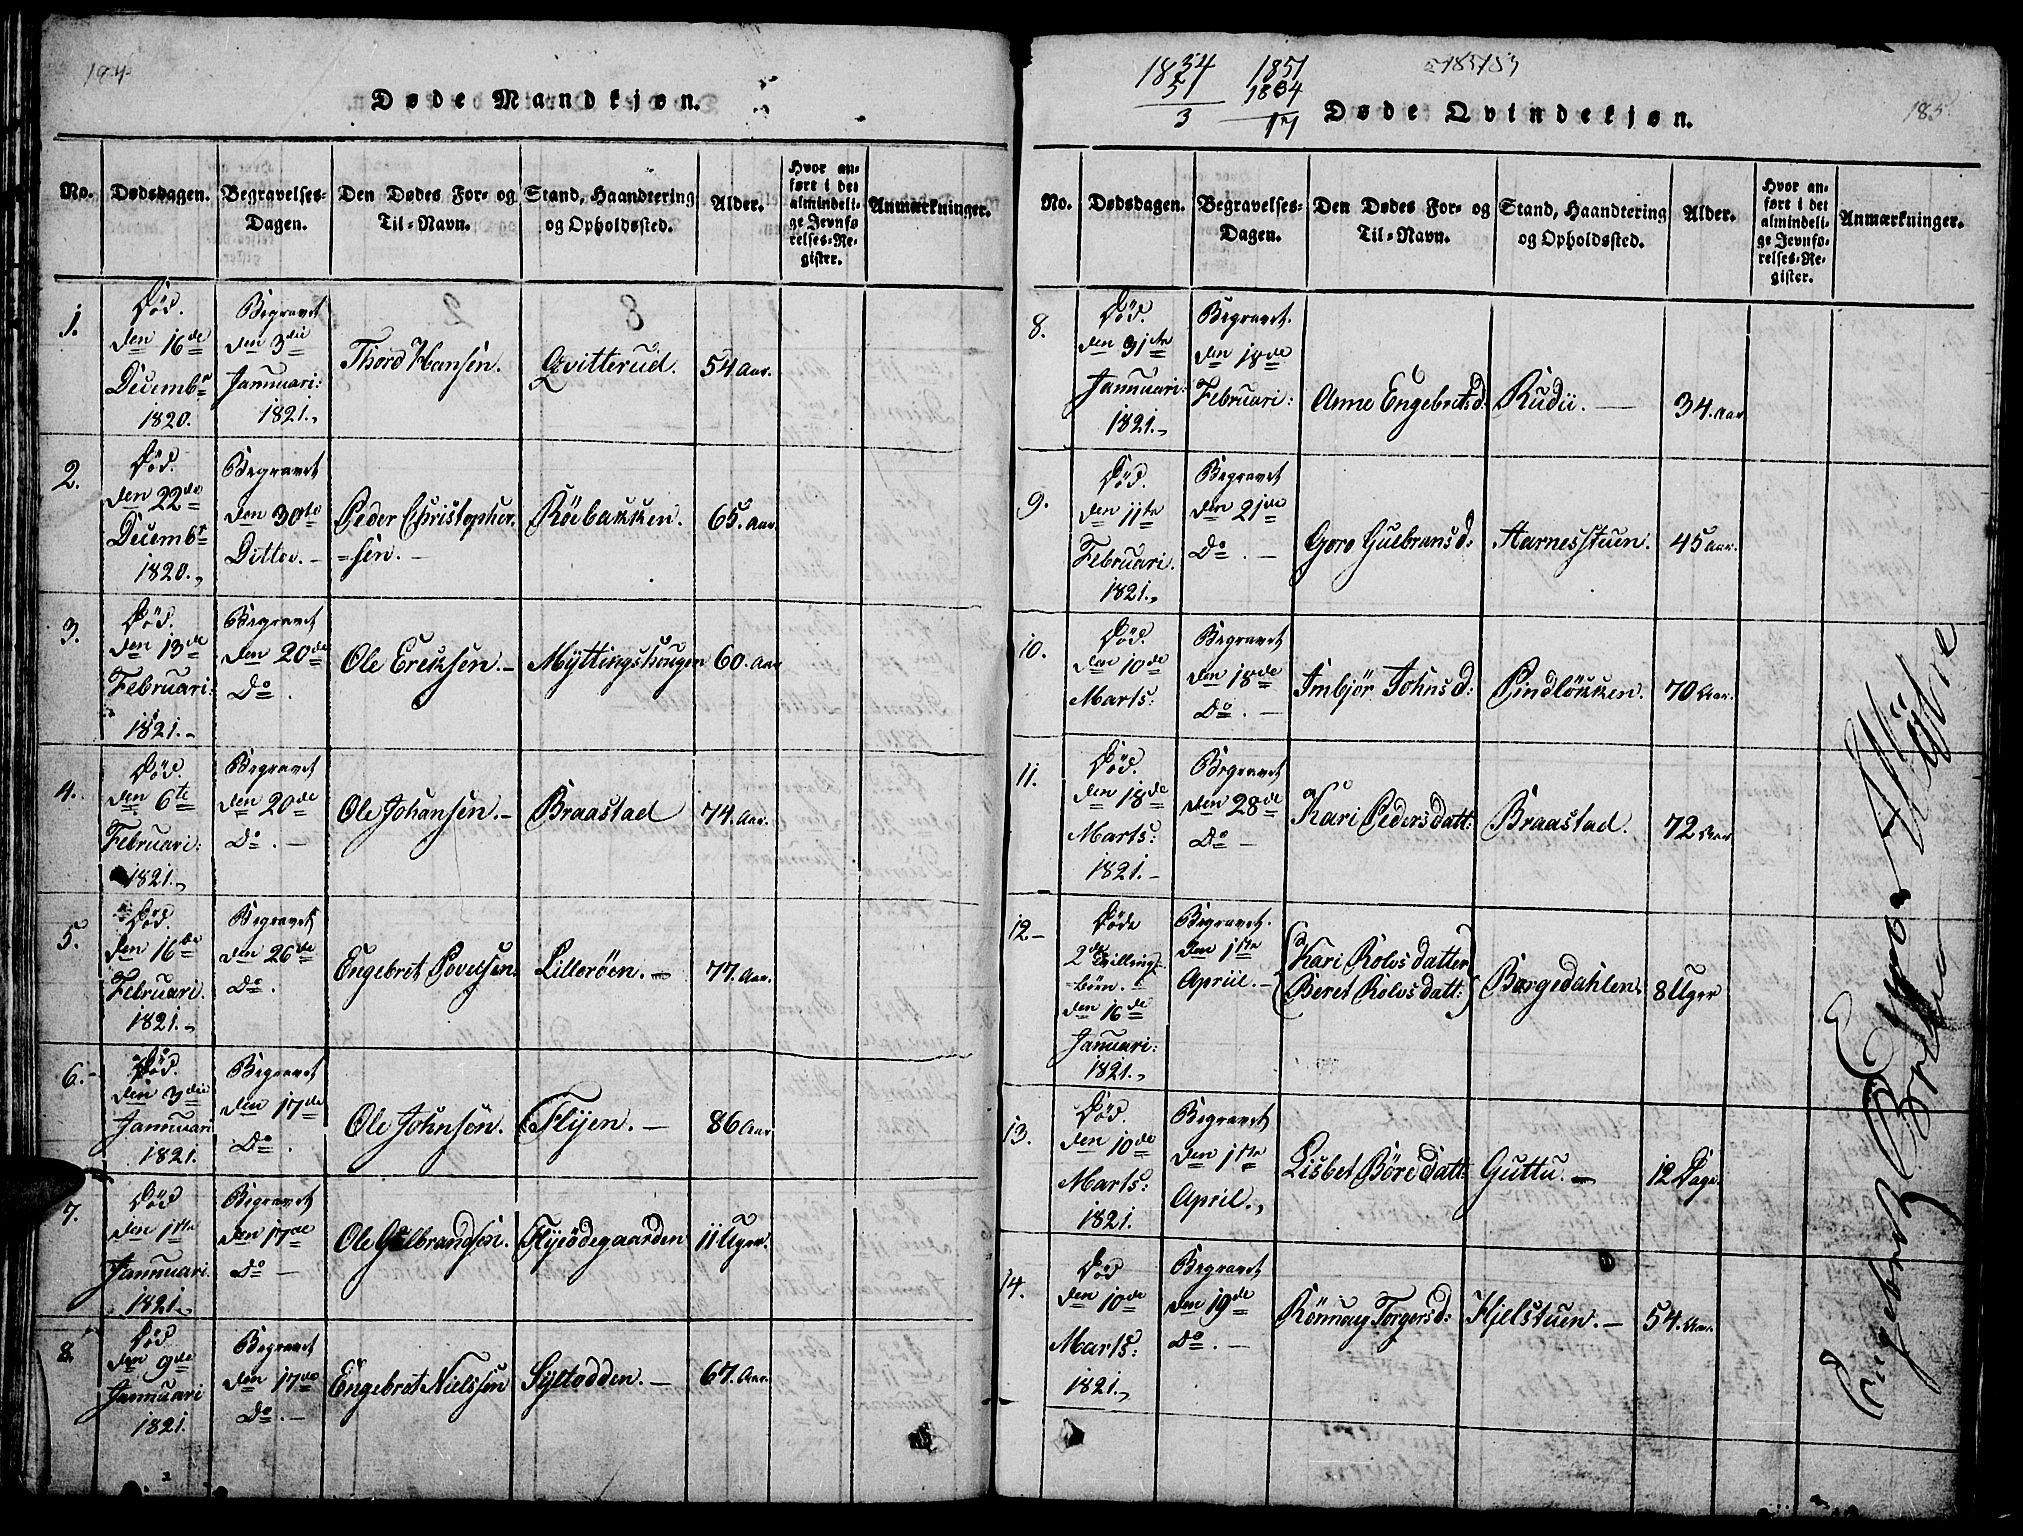 194
Døde Mandkjøn.
No.
Dødsdagen.
Begravelses-
Dagen.
Den Dødes For- og
Til-Navn.
Stand, Haandtering
og Opholdssted.
Alder.
Hvor an-
ført i det
almindeli-
ge Jevnfø-
relses-Re-
gister.
Anmærkninger.
1.
Død.
den 16de
Decembr
1820.
Begravet
den 3die
Januari:
1821.,
Thord Hansen.
Qvitterud.
54 Aar.
2.
Død.
den 22de
Decembr
1820.,
Begravet
den 30te
Dittoe. -
Peder Christopher
=sen. -
Röebakken.
65. Aar.
3.
Død.
den 13de
Februari:
1821. -
Begravet
den 20de
Do.
Ole Ereksen. -
Myttingshougen
60. Aar
4.
Død.
den 6te
Februari:
1821.,
Begravet
den 20de
Do. -
Ole Johansen. -
Braastad
74. Aar.
5.
Død.
den 16de
Februari.
1821. -
Begravet
den 26de
Do.
Engebret Povelsen.
Lilleröen. -
77. Aar.
6. -
Død.
den 3die
Januuari
1821.
Begravet
den 17de
Do.
Ole Johnsön.
Flyen. -
86 Aar
7.
Død
den 1ste
Januuari.
1821.
Begravet
den 17de
Do -
Ole Gulbrandsen.
Flyeödegaarden
11 Uger.
8.
Død
den 9de
Januuari
1821.
Begravet
den 17de
Do. -
Engebret Nielssen
Syltodden. -
67. Aar.
1834
51
3
1851
1834
17
Døde Qvindekjøn.
185
No.
Dødsdagen.
Begravelses-
Dagen.
Den Dødes For- og
Til-Navn.
Stand, Haandtering
og Opholdssted.
Alder.
Hvor an-
ført i det
almindeli-
ge Jevnfø-
relses-Re-
gister.
Anmærkninger.
8.
Død.
den 31te
Januuari:
1821.,
Begravet.
den 18de
Februari:
Anne Engebretsd:
Rudii. -
34. Aar
9.
Död.
den 11te
Februari.
1821.,
Begravet
den 21de
Do. -
Goro Gulbransd:
Aarnesstuen.
45 Aar.
10.
Död.
den 10de
Marts:
Begravet
den 18de
Do. -
Imbjör Johnsd:
Pindlökken.
70 Aar.
11.
Död.
den 18de
Marts:
1821. -
Begravet
den 28de
Do -
Kari Pedersdatt:
Braastad.
72 Aar
12 -
Döde
2de Tvilling-
börn. -
den 16de
Januari:
1821.,
Begravet.
den 1ste
Apriil. -
Kari Rolvsdatter
Beret Rolvsdatt:
Borgedahlen.
8 Uger
13.
Död.
den 10de
Marts:
1821.
Begravet
den 1ste
April.,
Lisbet Böre datt:
Guttu. -
12 Dage.
14.
Död
den 10de
Marts:
1821.,
Begravet
den 19de
Do. -
Rönnoug Torgersd:
Kjelstuen. -
54. Aar.